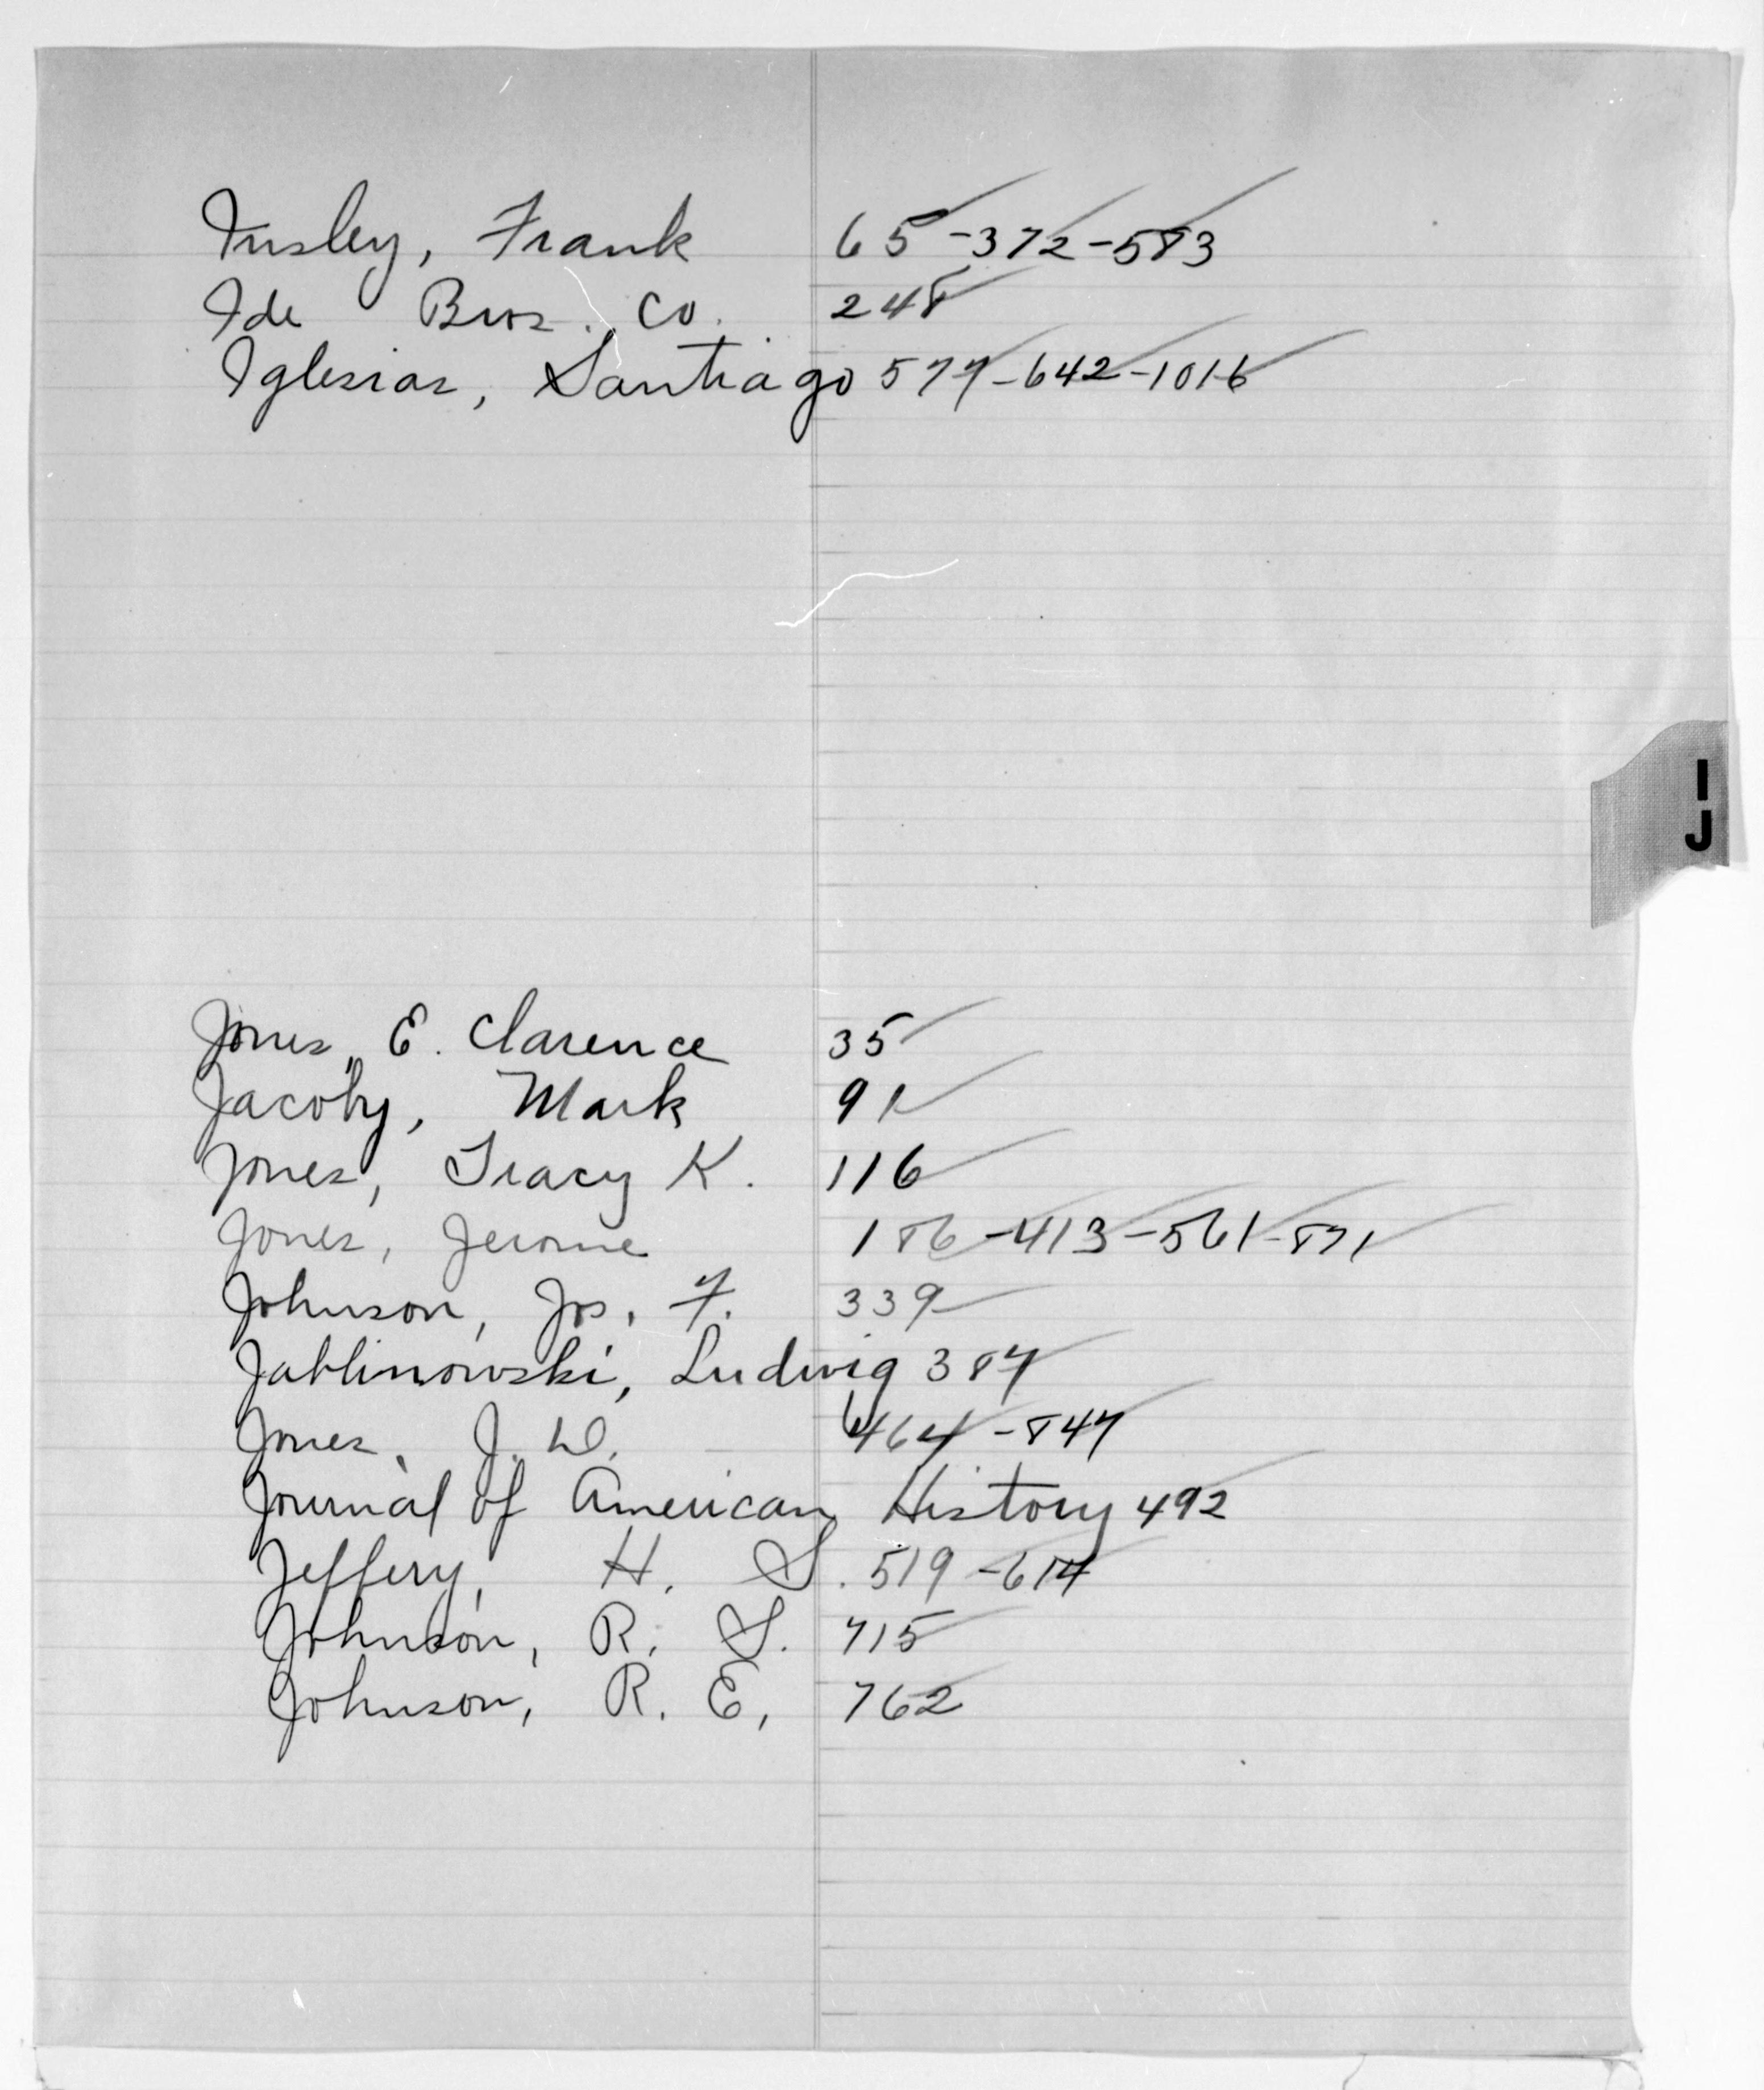 Insley, Frank 65-372-583
Ide Bros. Co. 248
Iglesias, Santiago 577-642-1016
I
J
Jones, E. Clarence 35
Jacoby, Mark 91
Jones, Tracy K. 116
Jones, Jerome 186-413-561-871
Johnson, Jos. F. 339
Jablinowski, Ludwig 387
Jones, J. W. 464-847
Journal of American History 492
Jeffery, H. S. 519-614
Johnson, R. S. 715
Johnson, R. E. 762